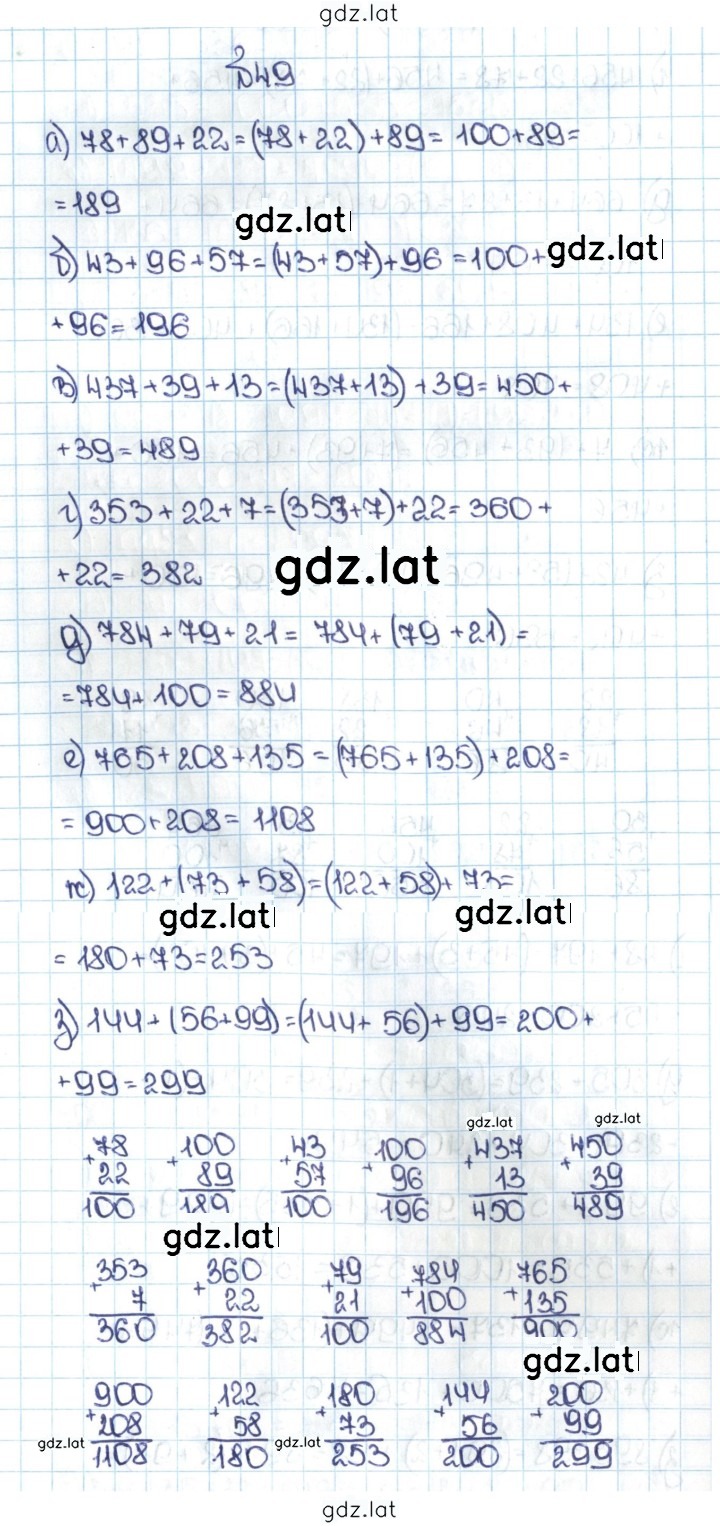 gdz.lat
№49
а) 78+89+22=(78+22)+89= 100+89=
=189
gdz.lat
б) 43+96+57=(43+57)+96 =100+ gdz.lat
+96=196
в) 437+39+13=(437+13)+39=450+
+39=489
г) 353+22+7=(353+7)+22=360+
+22= 382 gdz.lat
д) 784+79+21= 784+(79+21)=
=784+100=884
е) 765+208+135=(765+135)+208=
=900+208=1108
ж) 122+(73+58)=(122+58)+73=
gdz.lat gdz.lat
=180+73=253
з) 144+(56+99)=(144+56)+99=200+
+99=299
gdz.lat gdz.lat
78 100 43 100 437 450
+22 +89 +57 +96 +13 +39
100 189 100 196 450 489
gdz.lat
353 360 79 784 765
+7 +22 +21 +100 +135
360 382 100 884 900
gdz.lat
900 122 180 144 200
+208 +58 +73 +56 +99
gdz.lat 1108 180 gdz.lat 253 200 299
gdz.lat